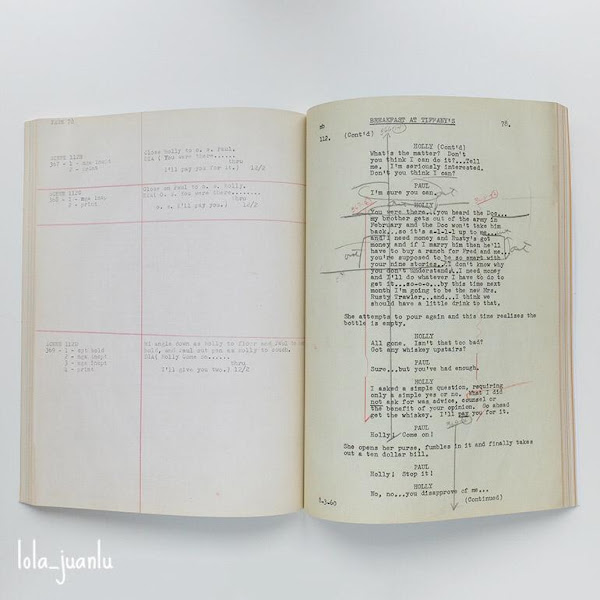 PAGE 78
SCENE 112C
367 - 1 -
2 - print
Close Holly to o. s. Paul.
Dial You were there......
thru
I'll pay you for it.) 12/2
SCENE 112D
368 - 1 - nga
2 - print
Close on Paul to o. s. Holly.
Dial o. s. You were there.......
thru
o. s. I'll pay you.) 12/2
SCENE 112E
369 - 1 - ext hold
2 -
3 - nga
4 - print
Hi angle down as Holly to floor and Paul to
hold, and Paul out pan as Holly to couch.
Dial Holly Come on......
thru
I'll give you two.) 12/2
mb
BREAKFAST AT TIFFANY'S
78.
112.
(Cont'd)
HOLLY (Cont'd)
What's the matter? Don't
you think I can do it?...Tell
me. I'm seriously interested.
Don't you think I can?
PAUL
I'm sure you can.
HOLLY
You were there...you heard the Doc...
my brother gets out of the army in
February and the Doc won't take him
back...so it's a-l-l-l up to me....
and I need money and Rusty's got
money and if I marry him then he'll
have to buy a ranch for Fred and me
you're supposed to be so smart with
your nine stories. I don't know why
you don't understand. I need money
and I'll do whatever I have to do to
get it...so-o-o...by this time next
month I'm going to be the new Mrs.
Rusty Trawler...and...I think we
should have a little drink to that.
She attempts to pour again and this time realizes the
bottle is empty.
HOLLY
All gone. Isn't that too bad?
Got any whiskey upstairs?
PAUL
Sure...but you've had enough.
HOLLY
I asked a simple question, requiring
only a simple yes or no. What I did
not ask for was advice, counsel or
the benefit of your opinion. Go ahead
get the whiskey. I'll pay you for it.
PAUL
Holly! Come on!
She opens her purse, fumbles in it and finally takes
out a ten dollar bill.
PAUL
Holly! Stop it!
HOLLY
No, no...you disapprove of me...
(Continued)
8-3-60
lola_juanlu